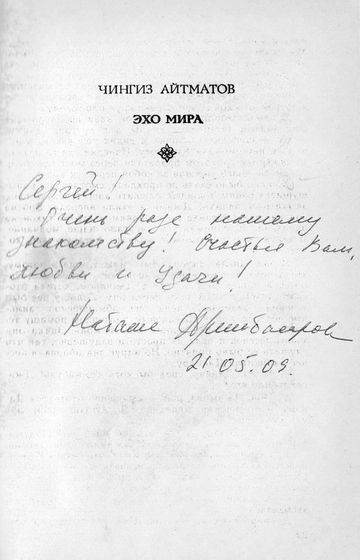 ЧИНГИЗ АЙТМАТОВ
ЭХО МИРА
Сергей!
Очень рада нашему
знакомству! Счастья Вам,
любви и удачи!
Наташа
21.05.09.